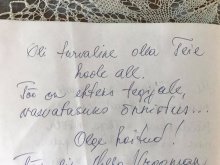 Oli turvaline olla Teie
hoole all.
Töö on eksleni tegijale,
vaevatasuks õnnistus...
Olge hoitud!